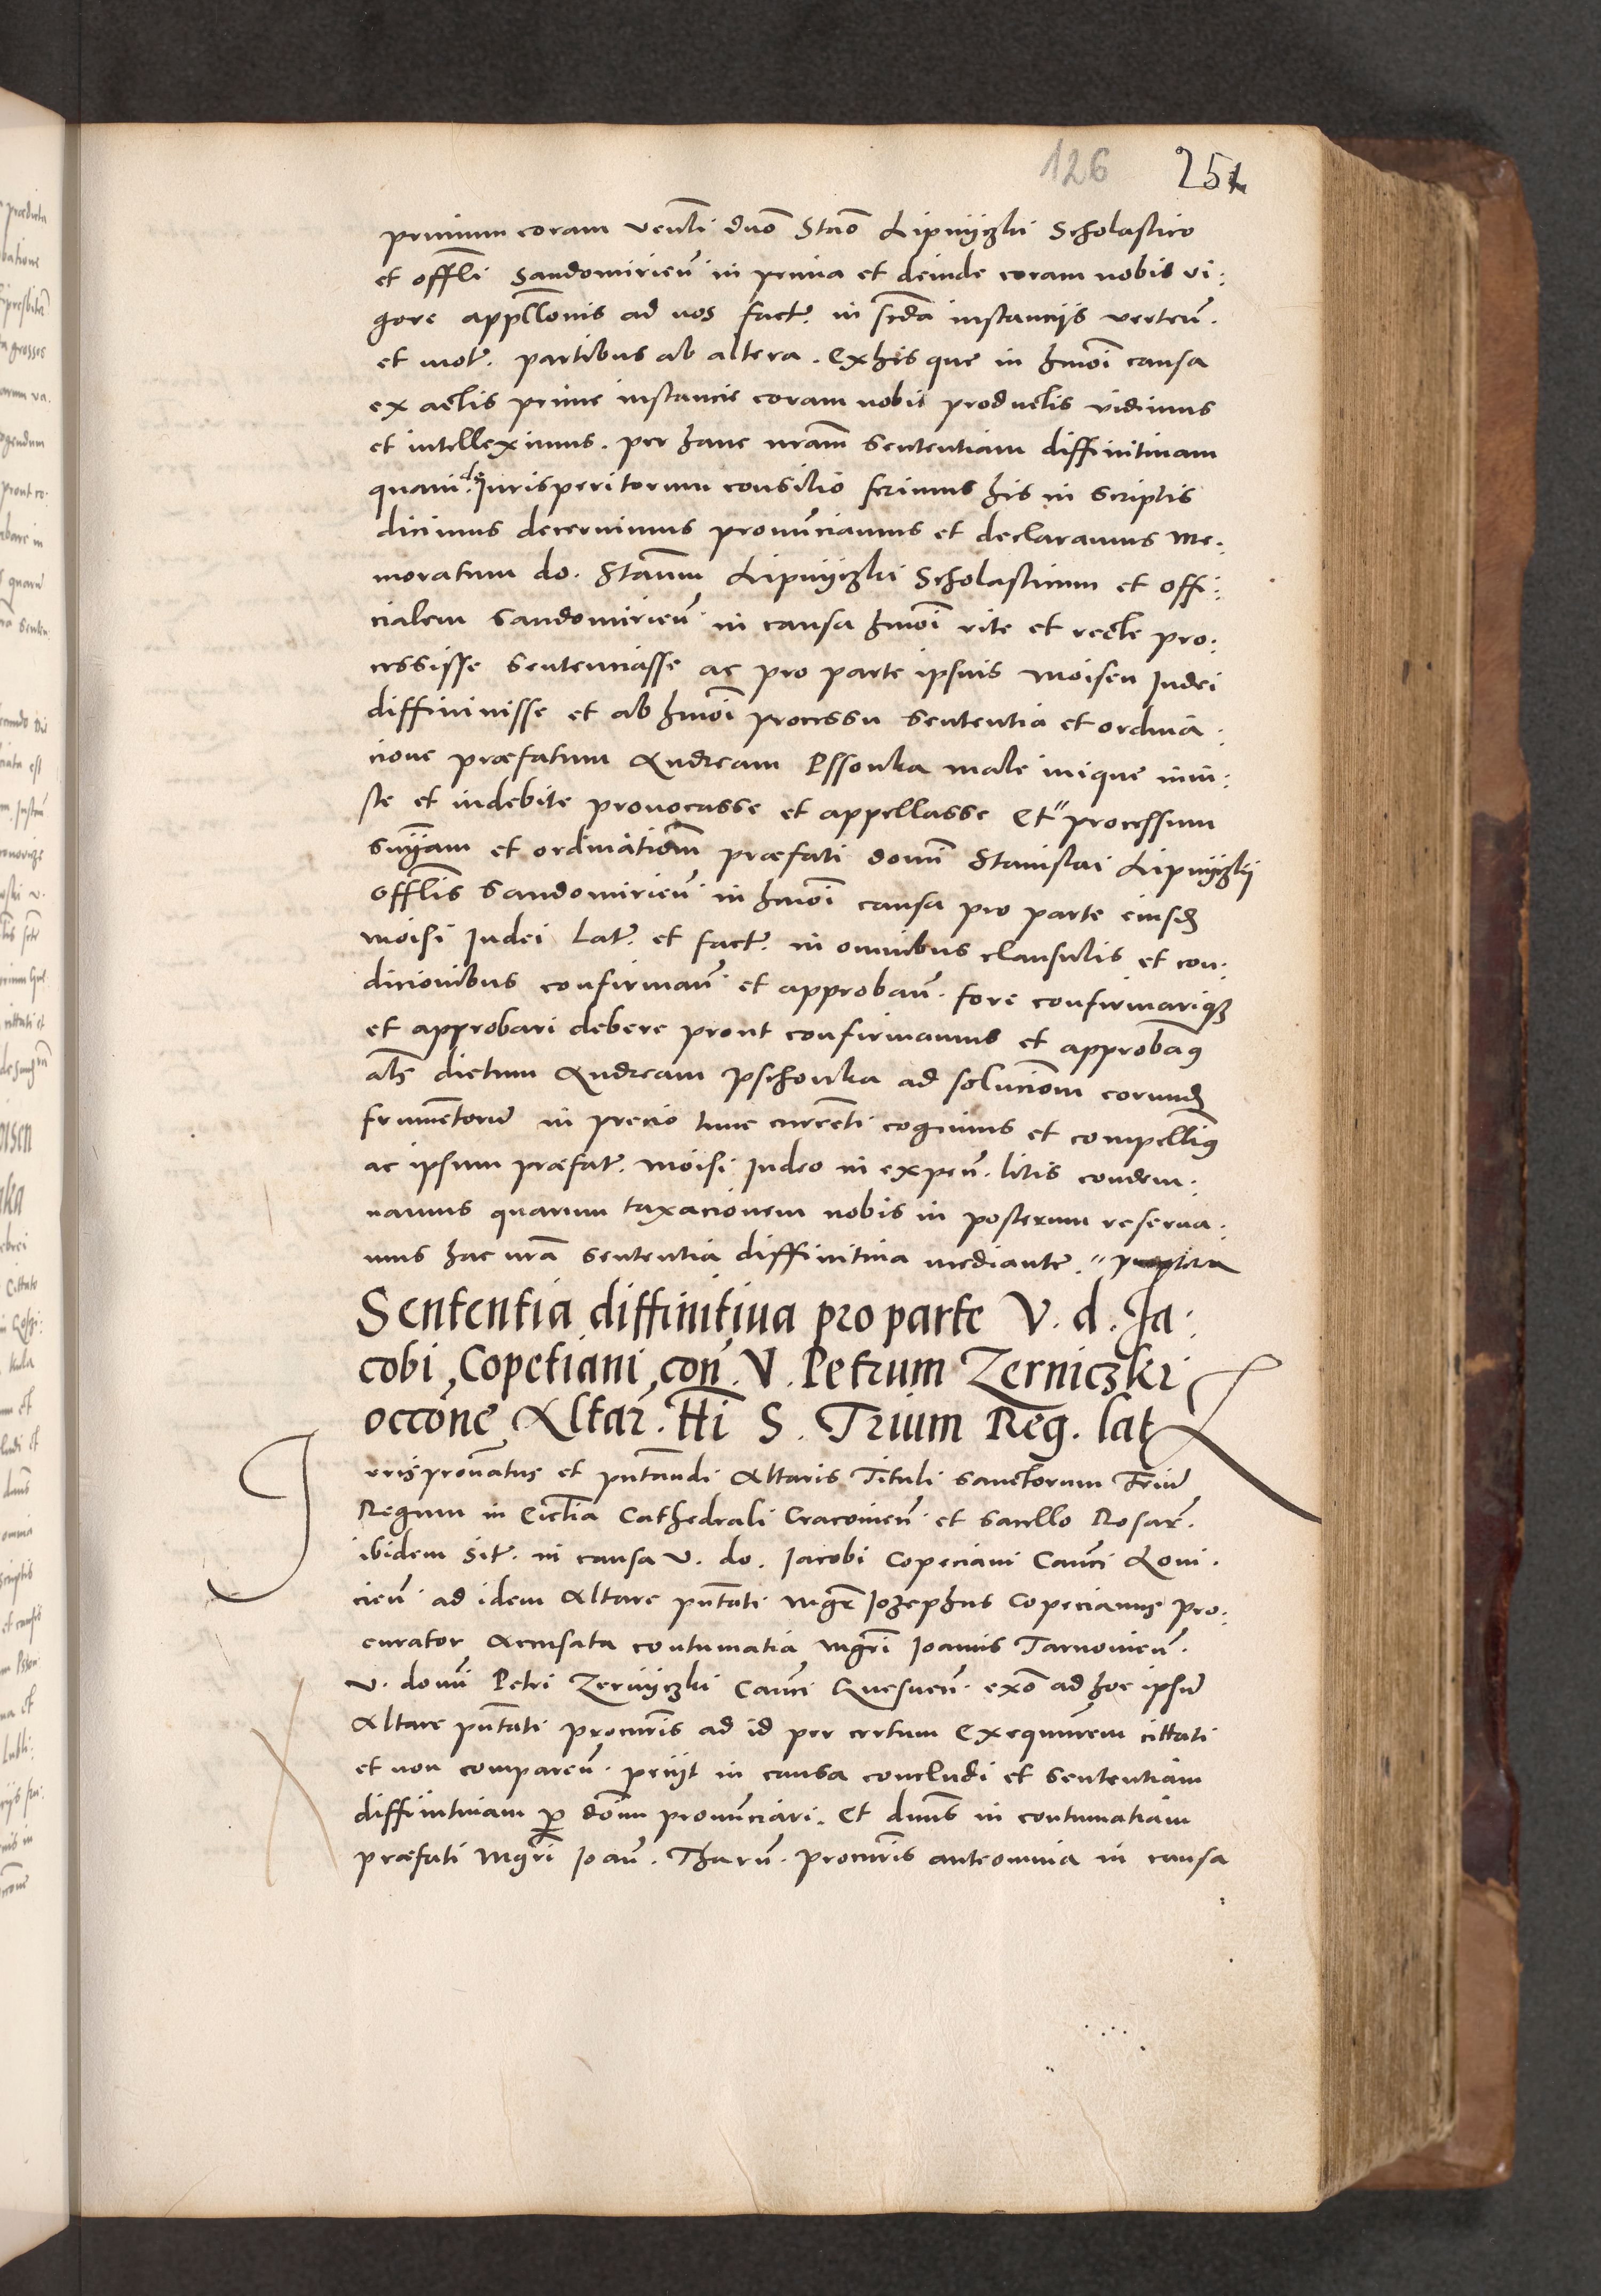 126 251
primum coram venli dno Stao Lipnyczki Scholastico
et offli Sandomirien in prima et deinde coram nobis vi:
gore appllonis ad nos fact. in scda instancijs verten.
et mot. partibus ab altera. Ex his que in hmoi causa
ex actis prime instancie coram nobis productis vidimus
et intelleximus. per hanc nram sententiam diffinitivam
quam de Jurisperitorum consilio ferimus his in scriptis
dicimus decernimus pronunciamus et declaramus me:
moratum do. Stanm Lipnyczki Scholasticum et offi:
cialem Sandomirien in causa hmoi rite et recte pro:
cessisse sentenciasse ac pro parte ipsius Moisen Judei
diffinivisse et ab hmoi processu sententia et ordina:
cione præfatum Andream Pssonka male inique iniu:
ste et indebite provocasse et appellasse Et processum
snyam et ordinationem præfati domi Stanislai Lipnyczky
offlis Sandomirien in hmoi causa pro parte eiusd
Moisi Judei lat. et fact. in omnibus clausulis et con:
dicionibus confirman et approban. fore confirmariq
et approbari debere prout confirmamus et approbamus
als dictum Andream Pschonka ad solucionem eorund
frumentorum in precio tunc currenti cogimus et compellimus
ac ipsum præfat. Moisi Judeo in expen. litis condem:
namus quarum taxacionem nobis in posterum reserva:
mus hac nra sententia diffinitiva mediante.
Sententia diffinitiva pro parte V. d. Ja:
cobi Copetiani con. V. Petrum Zerniczki
occone Altar. tti S. Trium Reg. lat
Jurispronatus et pntandi Altaris Tituli sanctorum Trium
Regum in Ecctia Cathedrali Cracovien et Sacello Rosar.
ibidem Sit. in causa V. do. Jacobi Copeciani Canci Lovi:
cien ad idem Altare pntati Mgr Jozephus Copecianus pro:
curator Accusata contumatia Mgri Joannis Tarnovien.
V. domi Petri Zernyczki Canci Gnesnen. exo ad hoc ipsum
Altare pntati procuris ad id per certum Exequutorem cittati
et non comparen. petijt in causa concludi et sententiam
diffinitivam p domi pronunciari. Et dnus in contumatiam
præfati Mgri Joan. Tharn. procuris ante omnia in causa